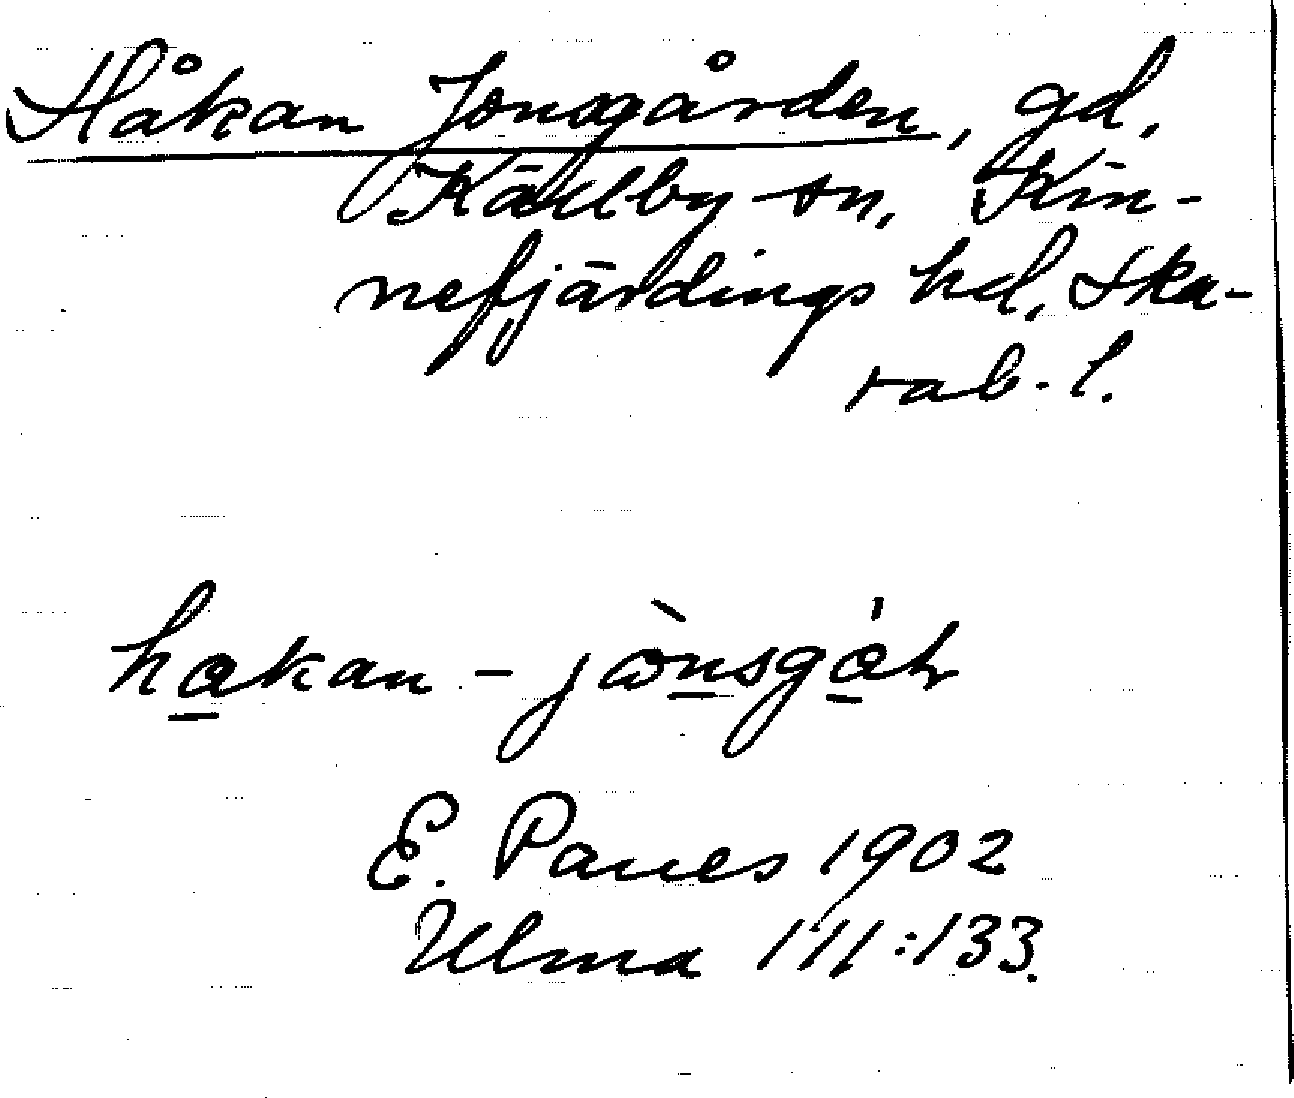 Håkan Jonsgården, gd,
Källby sn, Kin-
nefjärdings hd, Ska-
rab. l.
hakan - jònsgát
E. Panes 1902
Ulma 111:133.